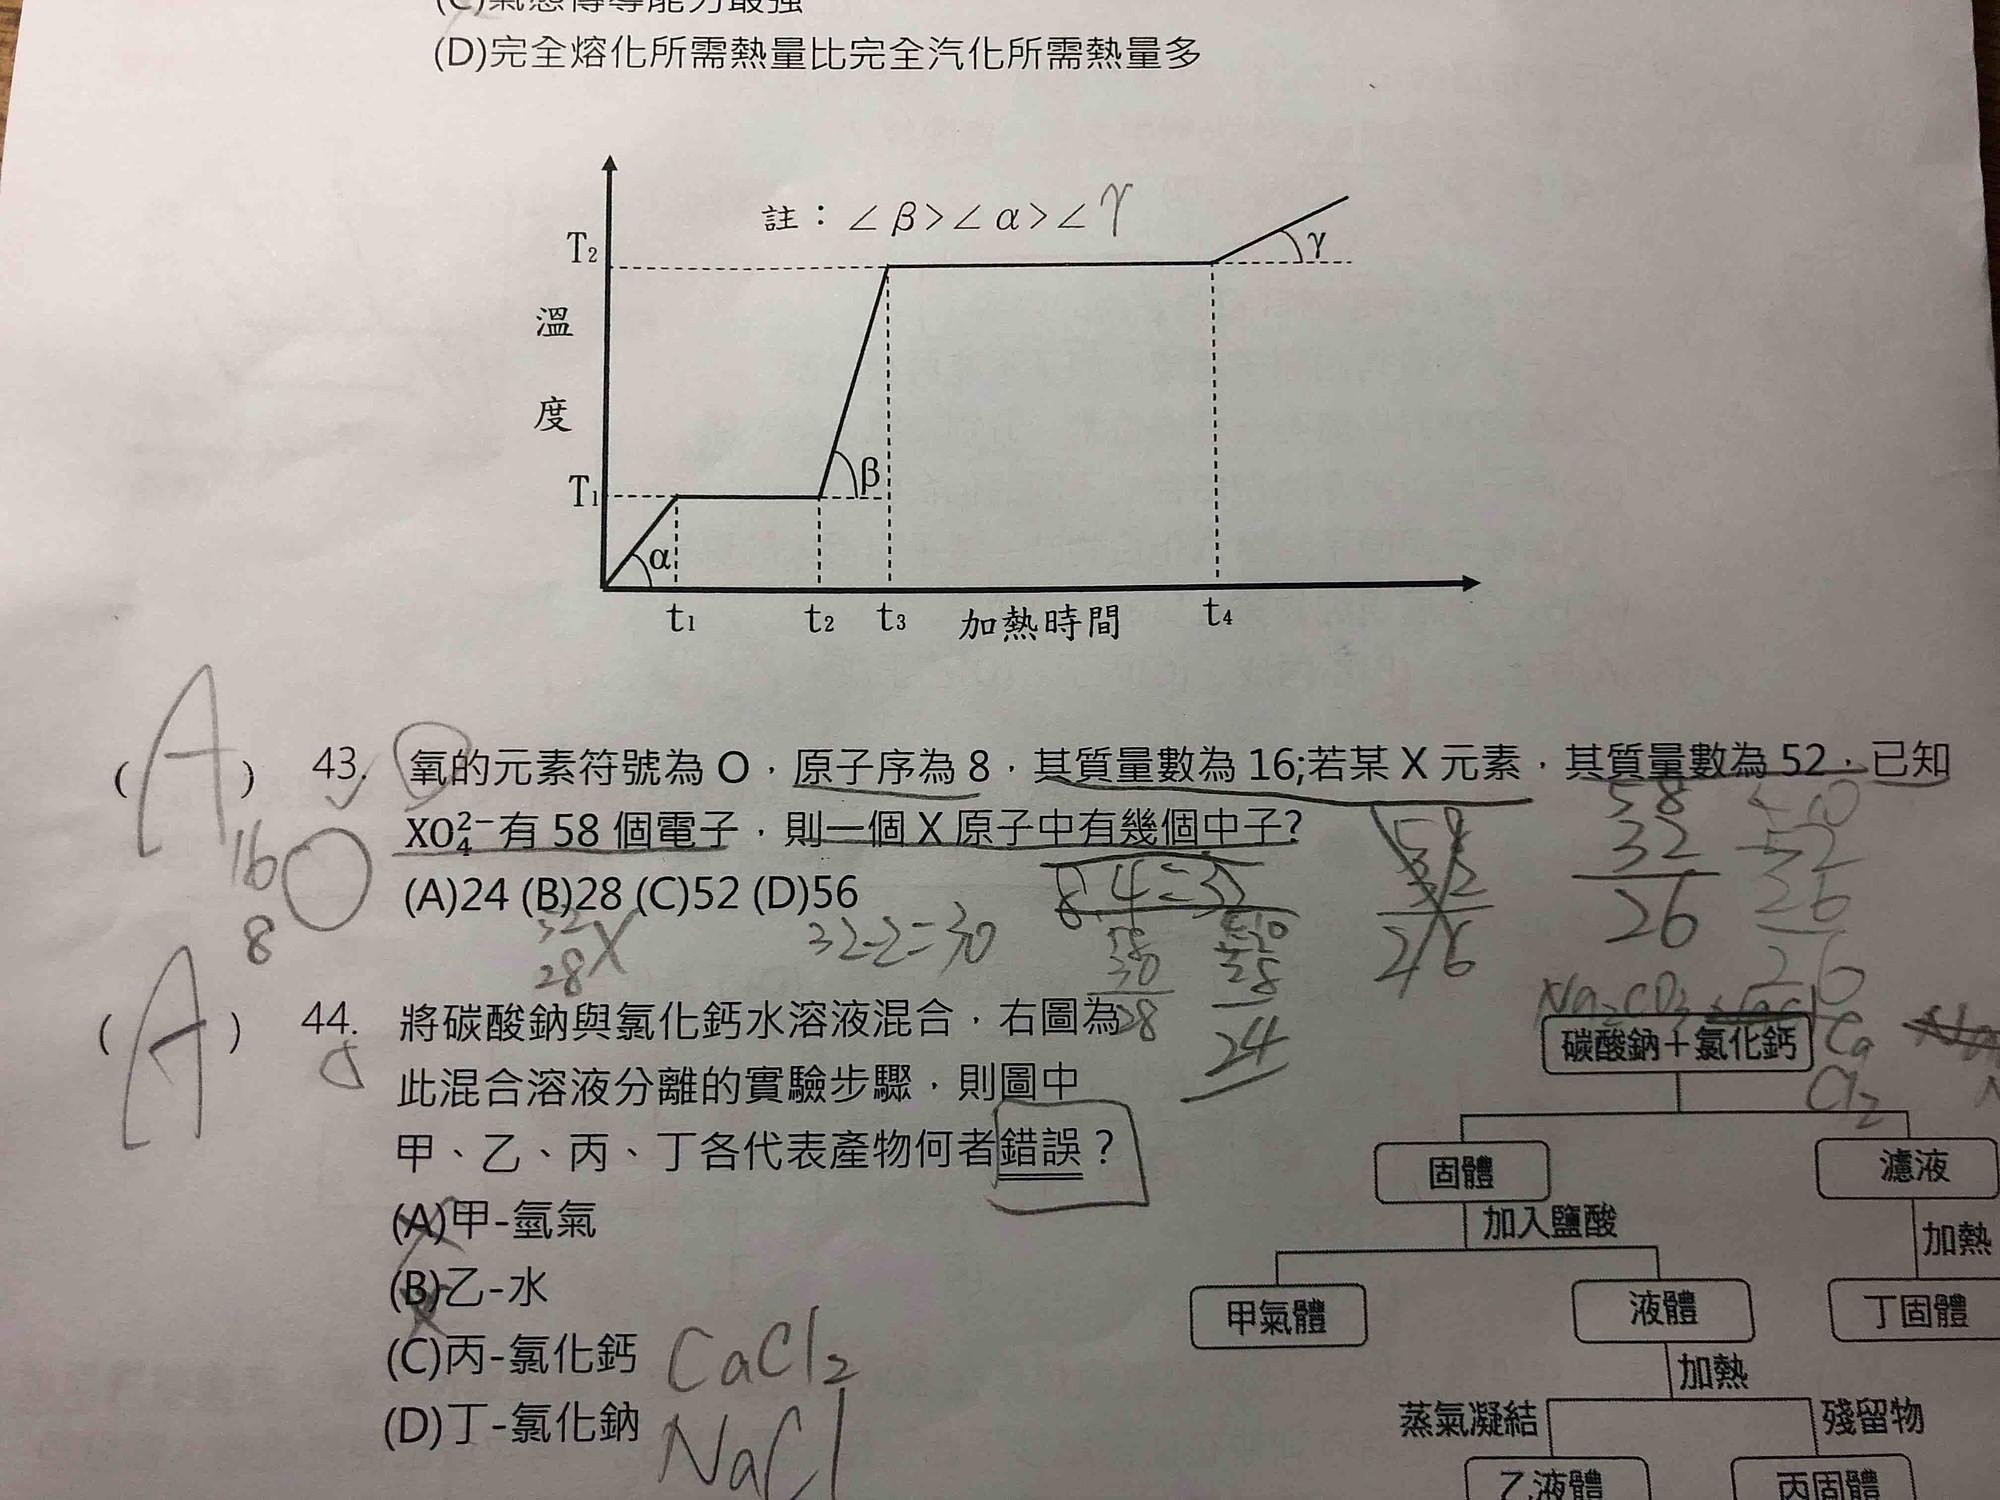 (C)氣態傳導能力最強
(D)完全熔化所需熱量比完全汽化所需熱量多
註：∠β>∠α>∠γ
T₂
γ
溫
度
β
T₁
α
t₁ t₂ t₃ 加熱時間 t₄
(A) 43. 氧的元素符號為 O，原子序為 8，其質量數為 16;若某 X 元素，其質量數為 52，已知
XO₄²⁻有 58 個電子，則一個 X 原子中有幾個中子?
(A)24 (B)28 (C)52 (D)56
16
8
32
28
32-2=30
8.4=32
58
30
28
28
24
58
32
26
58
32
26
52
26
26
(A) 44. 將碳酸鈉與氯化鈣水溶液混合，右圖為
此混合溶液分離的實驗步驟，則圖中
甲、乙、丙、丁各代表產物何者錯誤？
(A)甲-氫氣
(B)乙-水
(C)丙-氯化鈣 CaCl₂
(D)丁-氯化鈉 NaCl
Na₂CO₃
碳酸鈉＋氯化鈣
Ca
Cl₂
固體
濾液
加入鹽酸
加熱
甲氣體
液體
丁固體
加熱
蒸氣凝結
殘留物
乙液體
丙固體